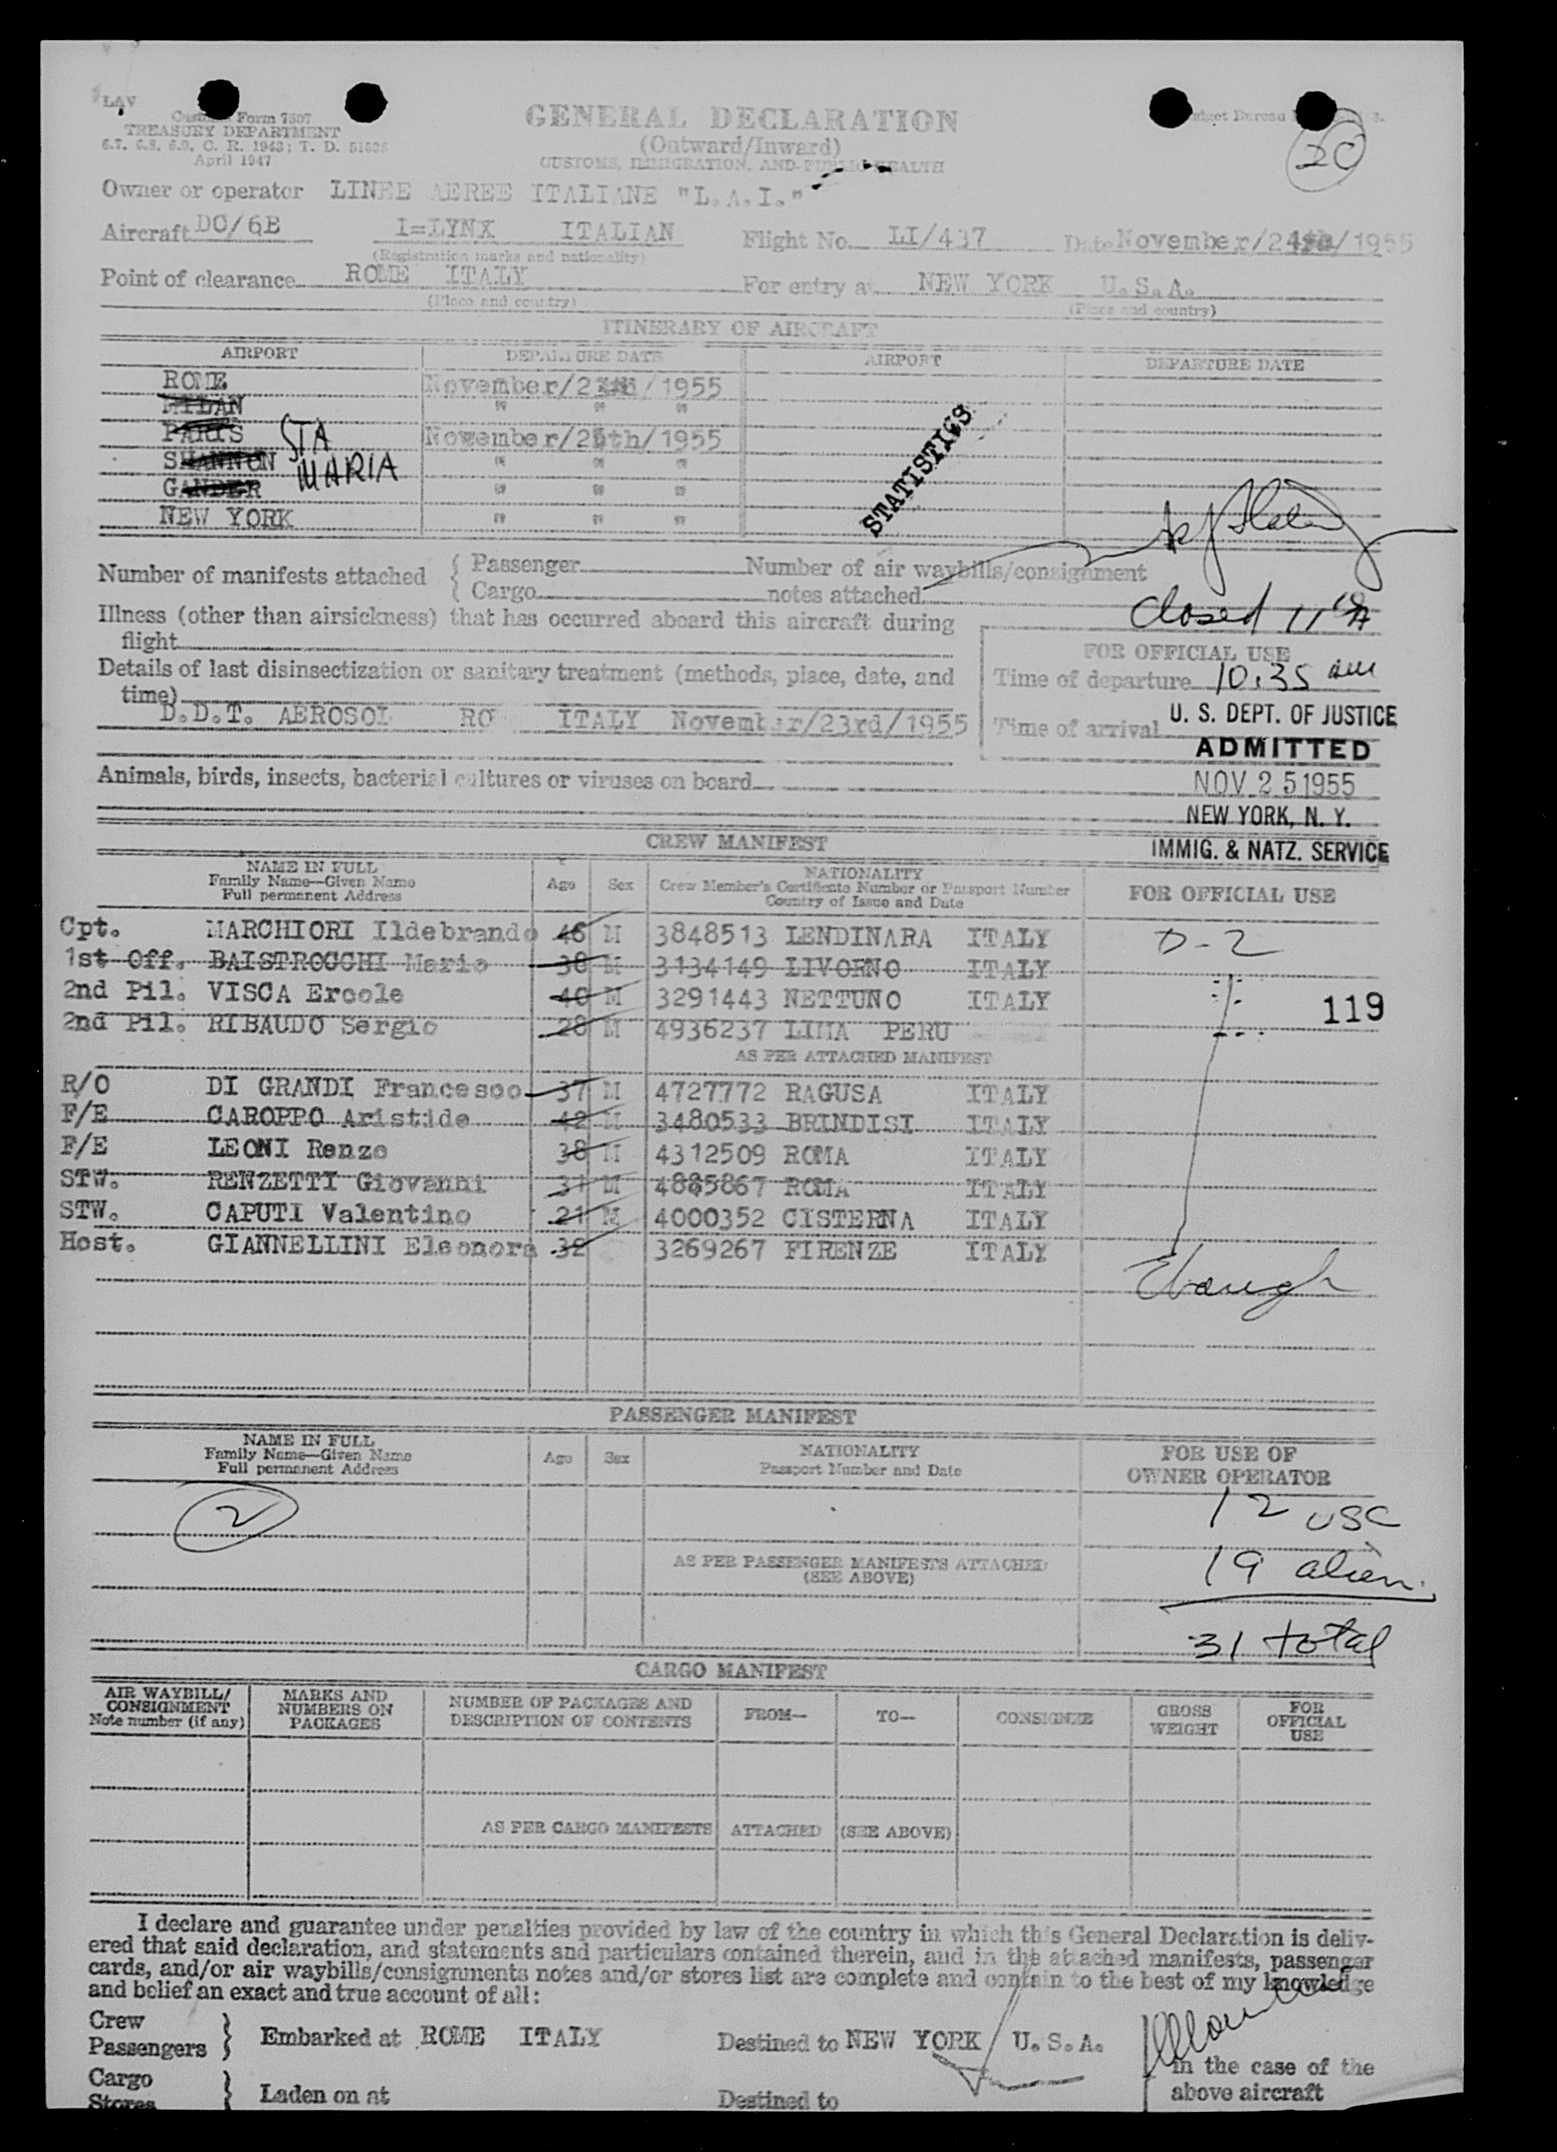 LAV
Form 7507
TREASURY DEPARTMENT
April 1947
GENERAL DECLARATION
(Outward/Inward)
CUSTOMS, IMMIGRATION, AND PUBLIC HEALTH
20
Owner or operator LINEE AEREE ITALIANE "L.A.I."
Aircraft DC/6B I=LYNX ITALIAN Flight No. LI/437 Date November/24/1955
(Registration marks and nationality)
Point of clearance ROME ITALY For entry at NEW YORK U.S.A.
(Place and country) (Place and country)
ITINERARY OF AIRCRAFT
AIRPORT DEPARTURE DATE AIRPORT DEPARTURE DATE
ROME November/2 /1955
MILAN " " "
PARIS STA November/25th/1955
SHANNON MARIA " " "
GANDER " " "
NEW YORK " " "
STATISTICS
Number of manifests attached { Passenger Number of air waybills/consignment
{ Cargo notes attached
Closed 11 A
Illness (other than airsickness) that has occurred aboard this aircraft during
flight
FOR OFFICIAL USE
Details of last disinsectization or sanitary treatment (methods, place, date, and
time)
Time of departure 10:35 am
D.D.T. AEROSOL RO ITALY November/23rd/1955
Time of arrival
U. S. DEPT. OF JUSTICE
ADMITTED
Animals, birds, insects, bacterial cultures or viruses on board
NOV 25 1955
NEW YORK, N. Y.
IMMIG. & NATZ. SERVICE
CREW MANIFEST
NAME IN FULL
Family Name—Given Name
Full permanent Address
Age Sex
NATIONALITY
Crew Member's Certificate Number or Passport Number
Country of Issue and Date
FOR OFFICIAL USE
Cpt. MARCHIORI Ildebrando 46 M 3848513 LENDINARA ITALY D-2
1st Off. BAISTROCCHI Mario 38 M 3134149 LIVORNO ITALY
2nd Pil. VISCA Ercole 40 M 3291443 NETTUNO ITALY 119
2nd Pil. RIBAUDO Sergio 28 M 4936237 LIMA PERU
AS PER ATTACHED MANIFEST
R/O DI GRANDI Francesco 37 M 4727772 RAGUSA ITALY
F/E CAROPPO Aristide 42 M 3480533 BRINDISI ITALY
F/E LEONI Renzo 38 M 4312509 ROMA ITALY
STW. RENZETTI Giovanni 31 M 4885867 ROMA ITALY
STW. CAPUTI Valentino 21 M 4000352 CISTERNA ITALY
Host. GIANNELLINI Eleonora 32 3269267 FIRENZE ITALY
Ebaugh
PASSENGER MANIFEST
NAME IN FULL
Family Name—Given Name
Full permanent Address
Age Sex
NATIONALITY
Passport Number and Date
FOR USE OF
OWNER OPERATOR
2
12 USC
AS PER PASSENGER MANIFESTS ATTACHED
(SEE ABOVE)
19 alien
31 total
CARGO MANIFEST
AIR WAYBILL/
CONSIGNMENT
Note number (if any)
MARKS AND
NUMBERS ON
PACKAGES
NUMBER OF PACKAGES AND
DESCRIPTION OF CONTENTS
FROM—
TO—
CONSIGNEE
GROSS
WEIGHT
FOR
OFFICIAL
USE
AS PER CARGO MANIFESTS ATTACHED (SEE ABOVE)
I declare and guarantee under penalties provided by law of the country in which this General Declaration is deliv-
ered that said declaration, and statements and particulars contained therein, and in the attached manifests, passenger
cards, and/or air waybills/consignments notes and/or stores list are complete and contain to the best of my knowledge
and belief an exact and true account of all:
Crew
Passengers } Embarked at ROME ITALY Destined to NEW YORK U.S.A.
in the case of the
Cargo
above aircraft
Stores } Laden on at Destined to